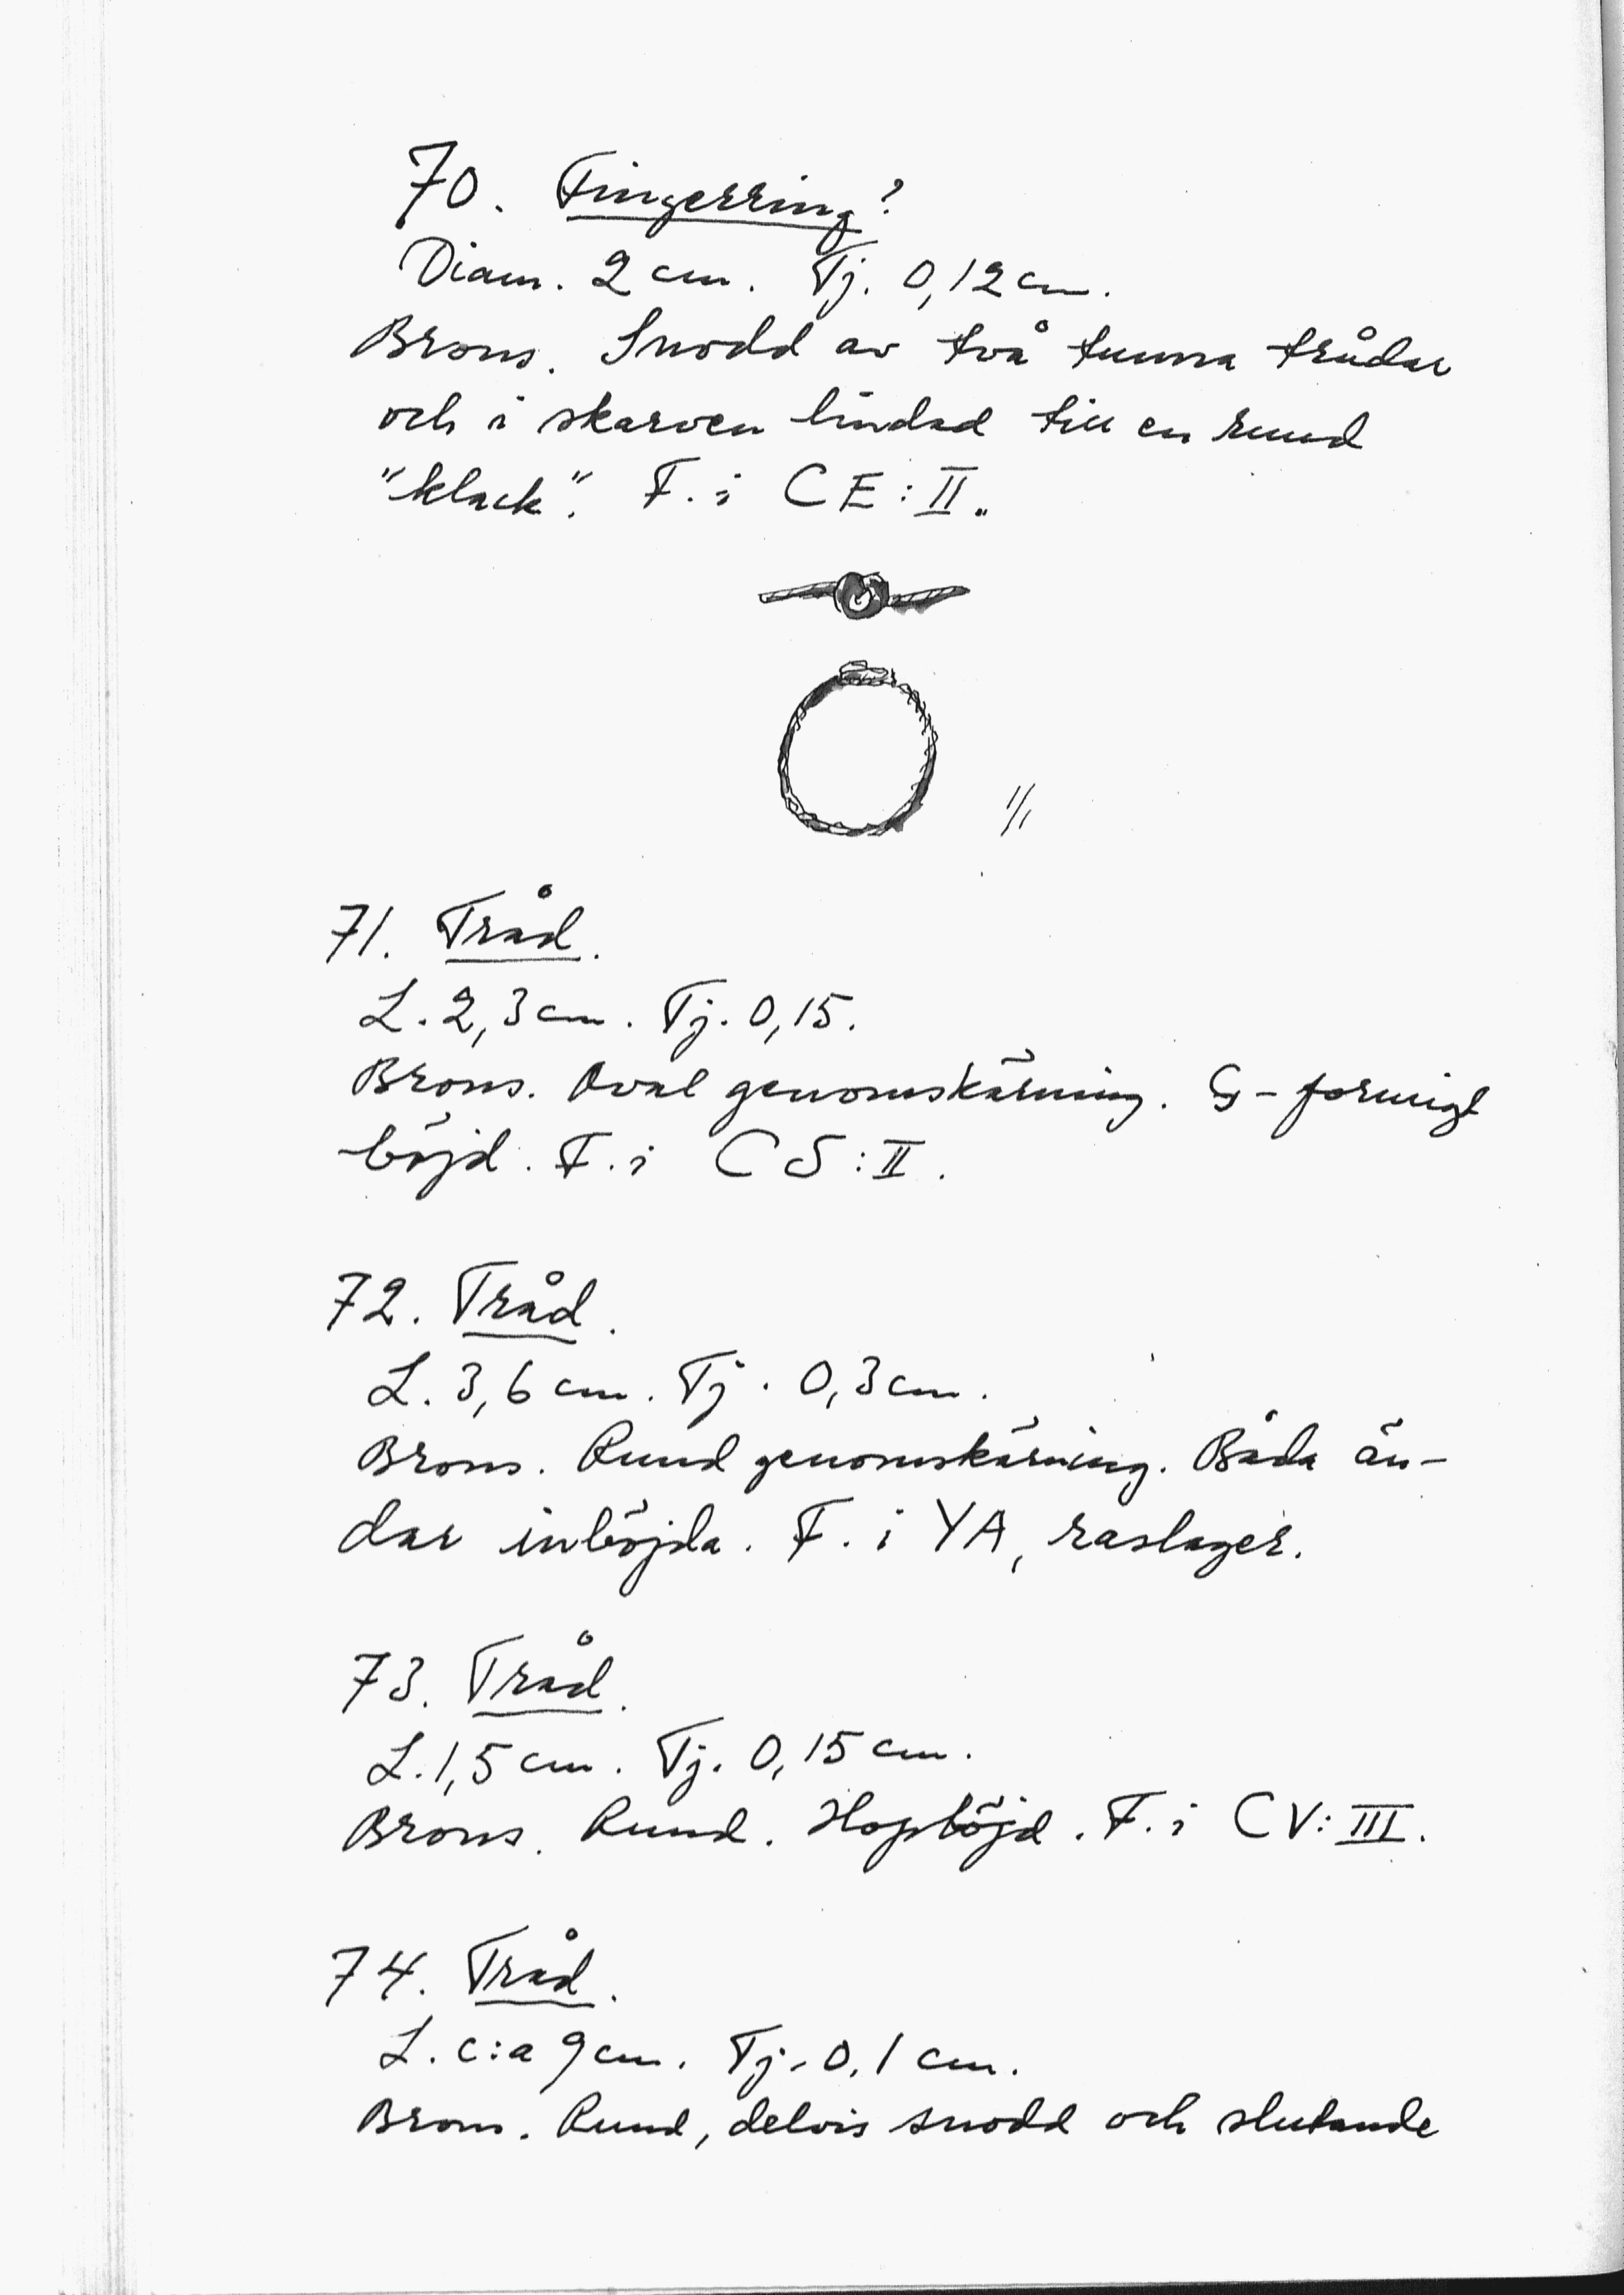 70. Fingerring?
Diam. 2 cm. Tj. 0,12 cm.
Brons. Snodd av två tunna trådar
och i skarven lindad till en rund
"klack". F. i CE:II.
1/1
71. Tråd.
L. 2,3 cm. Tj. 0,15.
Brons. Oval genomskärning. G-formigt
böjd. F. i CS:II.
72. Tråd.
L. 3,6 cm. Tj. 0,3 cm.
Brons. Rund genomskärning. Båda än-
dar inböjda. F. i YA, raslager.
73. Tråd.
L. 1,5 cm. Tj. 0,15 cm.
Brons. Rund. Hopböjd. F. i CV:III.
74. Tråd.
L. c:a 9 cm. Tj. 0,1 cm.
Brons. Rund, delvis snodd och slutande